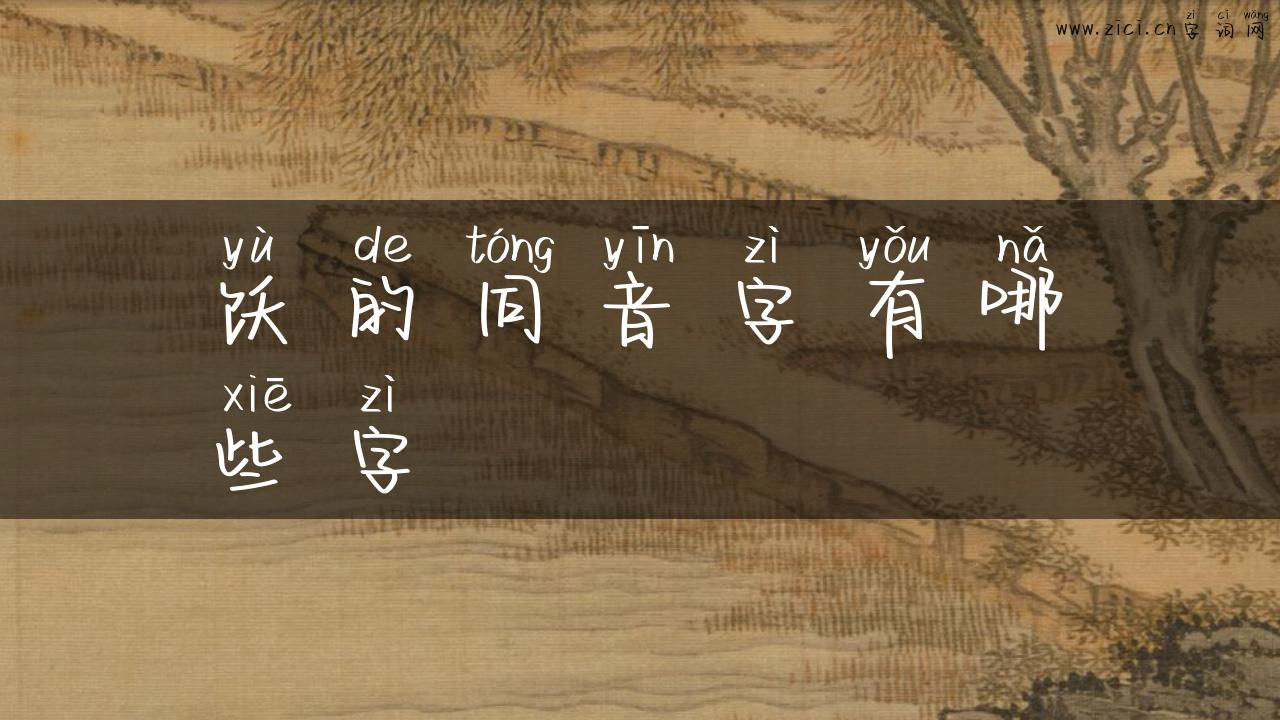 zì cí wǎng
www.zici.cn 字 词 网
yù de tóng yīn zì yǒu nǎ
饫 的 同 音 字 有 哪
xiē zì
些 字